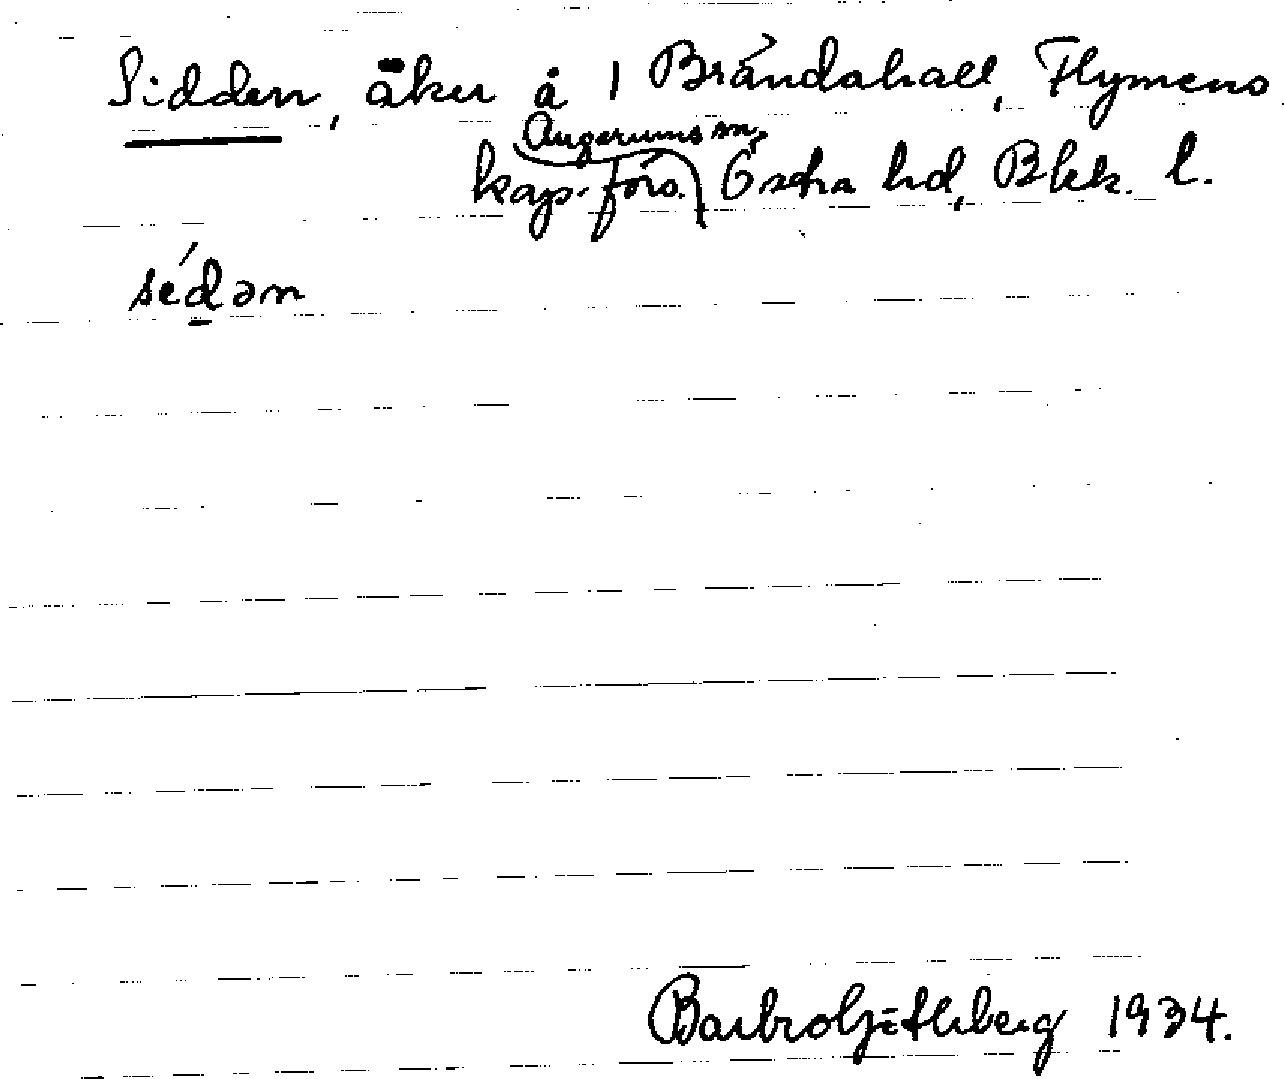 Sidden, åker å 1 Brändahall, Flymens
Augerums sn,
kap. förs. Östra hd, Blek. l.
sédən
Barbro 1934.